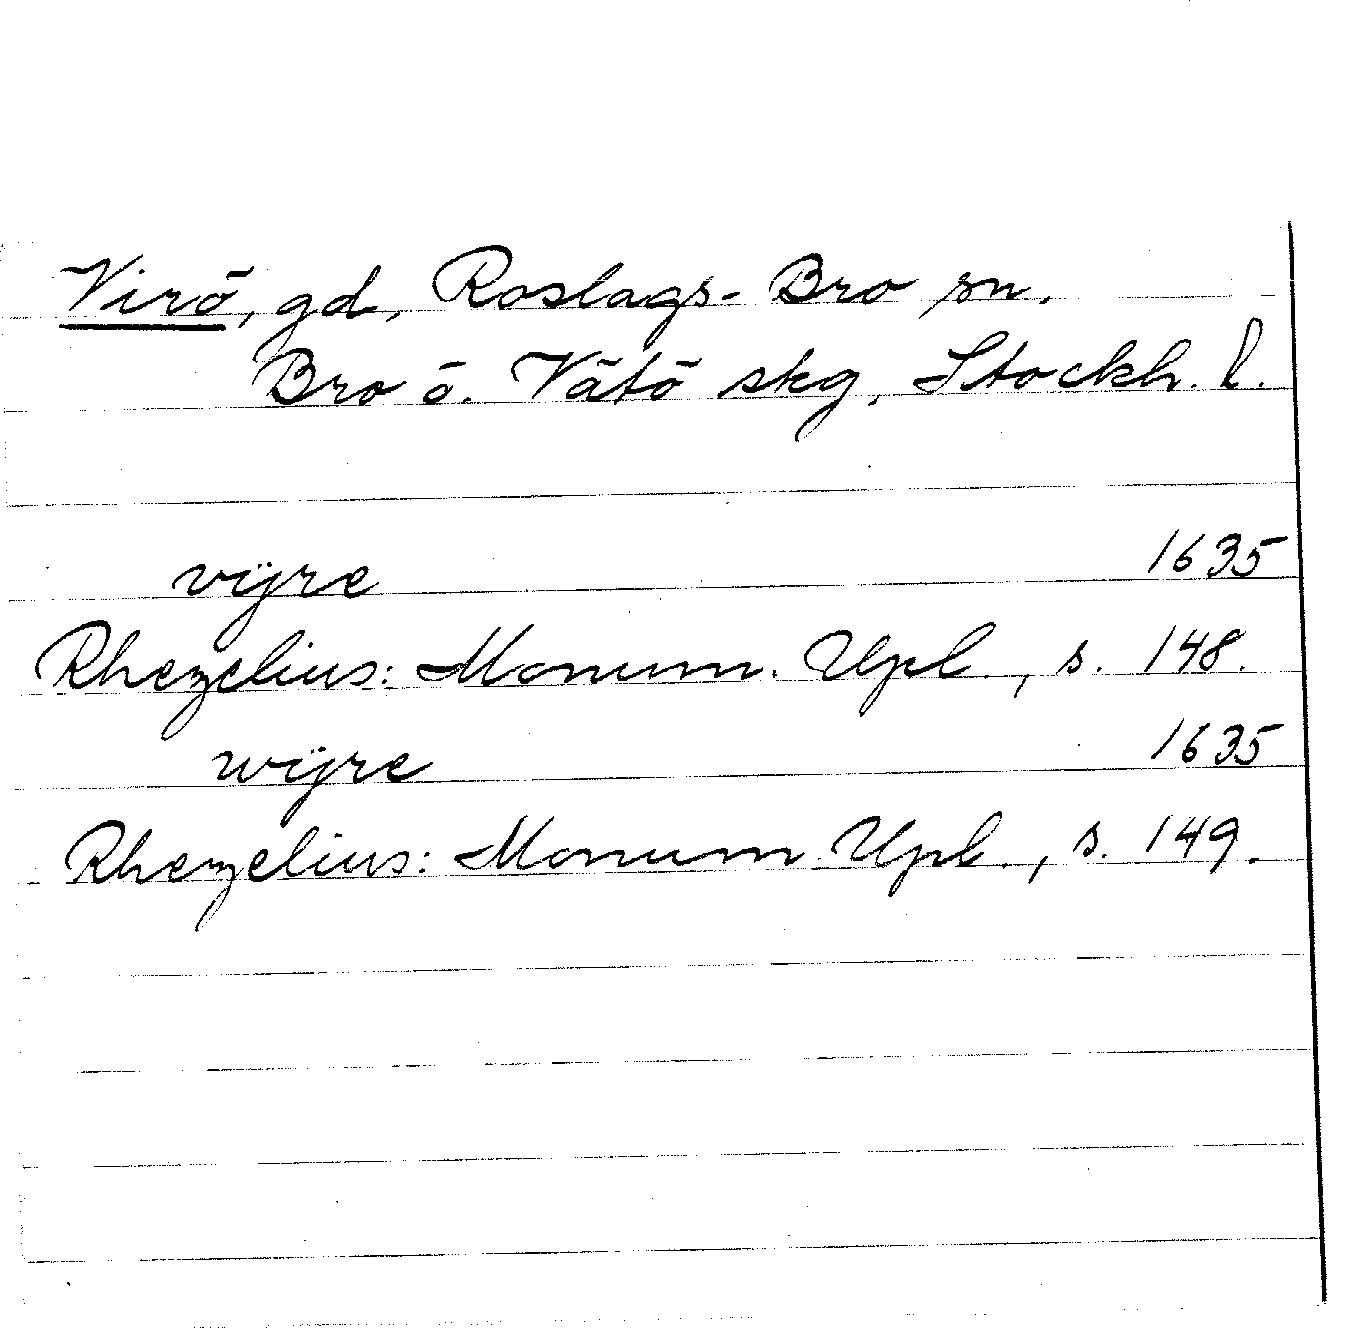 Virö, gd, Roslags-Bro sn.
Bro ö. Vätö skg, Stockh. l.
vijre 1635
Rhezelius: Monum. Upl., s. 148.
wijre 1635
Rhezelius: Monum. Upl., s. 149.